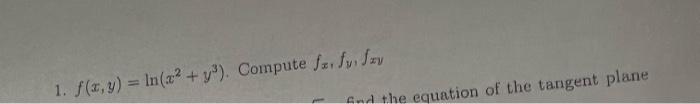 1. f(x, y) = ln(x² + y³). Compute fₓ, f_y, f_xy
find the equation of the tangent plane